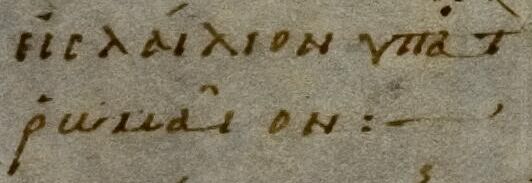 εἰς λαίλιον ὕπατ
ῥωμαῖον :—